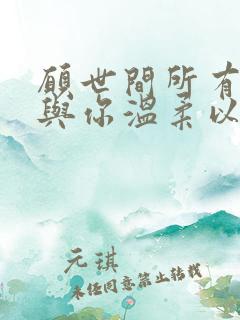 願世間所有
與你溫柔以
元琪
未經同意禁止轉載